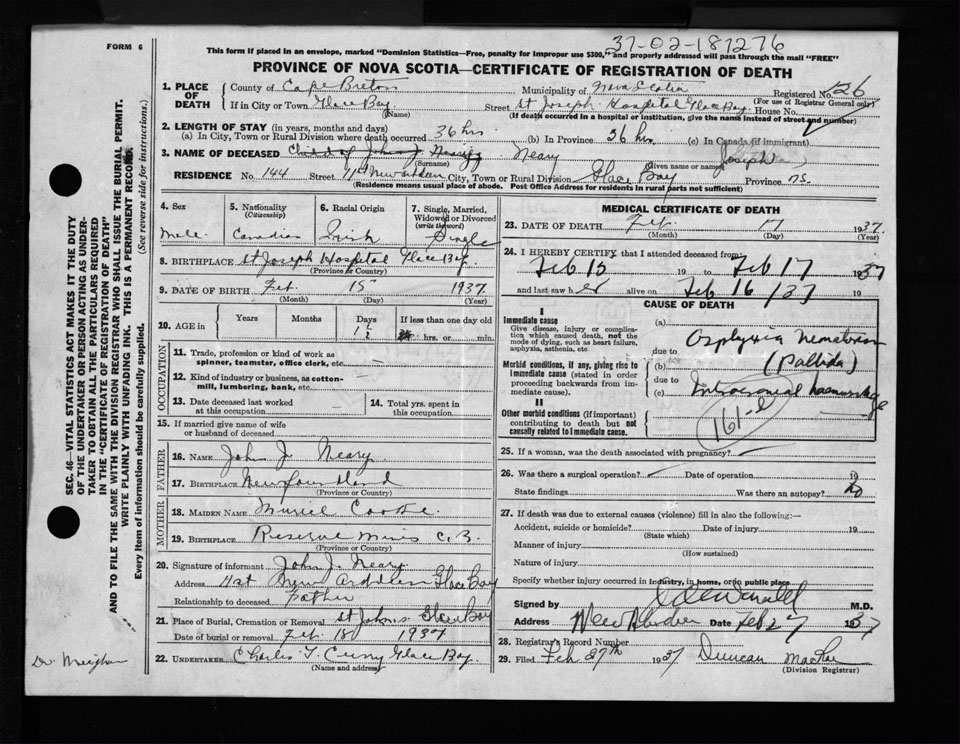 FORM 6
37-02-187276
This form if placed in an envelope, marked "Dominion Statistics—Free, penalty for improper use $300," and properly addressed will pass through the mail "FREE"
PROVINCE OF NOVA SCOTIA—CERTIFICATE OF REGISTRATION OF DEATH
1. PLACE OF DEATH
County of Cape Breton Municipality of Nova Scotia Registered No. 26
(For use of Registrar General only)
If in City or Town Glace Bay Street St Joseph Hospital Glace Bay House No.
(Name) (If death occurred in a hospital or institution, give the name instead of street and number)
2. LENGTH OF STAY (in years, months and days)
(a) In City, Town or Rural Division where death occurred 36 hrs (b) In Province 36 hrs (c) In Canada (if immigrant)
3. NAME OF DECEASED Child of John J Neary Joseph
(Surname) (Given name or names)
RESIDENCE No. 144 Street City, Town or Rural Division Glace Bay Province N.S.
(Residence means usual place of abode. Post Office Address for residents in rural parts not sufficient)
4. Sex 5. Nationality 6. Racial Origin 7. Single, Married, Widowed or Divorced
(Citizenship) (write the word)
Male Canadian Irish Single
8. BIRTHPLACE St Joseph Hospital Glace Bay
(Province or Country)
9. DATE OF BIRTH Feb. 15 1937
(Month) (Day) (Year)
10. AGE in Years Months Days If less than one day old
1 1/2 hrs. or min.
OCCUPATION
11. Trade, profession or kind of work as spinner, teamster, office clerk, etc.
12. Kind of industry or business, as cotton-mill, lumbering, bank, etc.
13. Date deceased last worked at this occupation 14. Total yrs. spent in this occupation
15. If married give name of wife or husband of deceased
FATHER
16. NAME John J. Neary
17. BIRTHPLACE Newfoundland
(Province or Country)
MOTHER
18. MAIDEN NAME Muriel
19. BIRTHPLACE Reserve Mines C.B.
(Province or Country)
20. Signature of informant John J. Neary
Address 11st New Glace Bay
Relationship to deceased Father
21. Place of Burial, Cremation or Removal St Johns Glace Bay
Date of burial or removal Feb. 18 1937
22. UNDERTAKER Charles Glace Bay
(Name and address)
MEDICAL CERTIFICATE OF DEATH
23. DATE OF DEATH Feb. 17 1937
(Month) (Day) (Year)
24. I HEREBY CERTIFY that I attended deceased from:
Feb 15 19 to Feb 17 1937
and last saw h er alive on Feb 16/37 19
CAUSE OF DEATH
I
Immediate cause
Give disease, injury or complication which caused death, not the mode of dying, such as heart failure, asphyxia, asthenia, etc.
(a) Asphyxia
due to
(b) (Pallida)
due to
(c)
Morbid conditions, if any, giving rise to immediate cause (stated in order proceeding backwards from immediate cause).
II
Other morbid conditions (if important) contributing to death but not causally related to immediate cause.
25. If a woman, was the death associated with pregnancy?
26. Was there a surgical operation? Date of operation 19
State findings Was there an autopsy? No
27. If death was due to external causes (violence) fill in also the following:—
Accident, suicide or homicide? Date of injury 19
(State which)
Manner of injury
(How sustained)
Nature of injury
Specify whether injury occurred in industry, in home, or in public place
Signed by M.D.
Address New Aberdeen Date Feb 27 1937
28. Registrar's Record Number
29. Filed Feb 27th 1937 Duncan
(Division Registrar)
SEC. 46—VITAL STATISTICS ACT MAKES IT THE DUTY
OF THE UNDERTAKER OR PERSON ACTING AS UNDER-
TAKER TO OBTAIN ALL THE PARTICULARS REQUIRED
IN THE "CERTIFICATE OF REGISTRATION OF DEATH"
AND TO FILE THE SAME WITH THE DIVISION REGISTRAR WHO SHALL ISSUE THE BURIAL PERMIT.
WRITE PLAINLY WITH UNFADING INK. THIS IS A PERMANENT RECORD.
Every item of information should be carefully supplied. (See reverse side for instructions.)
Dr